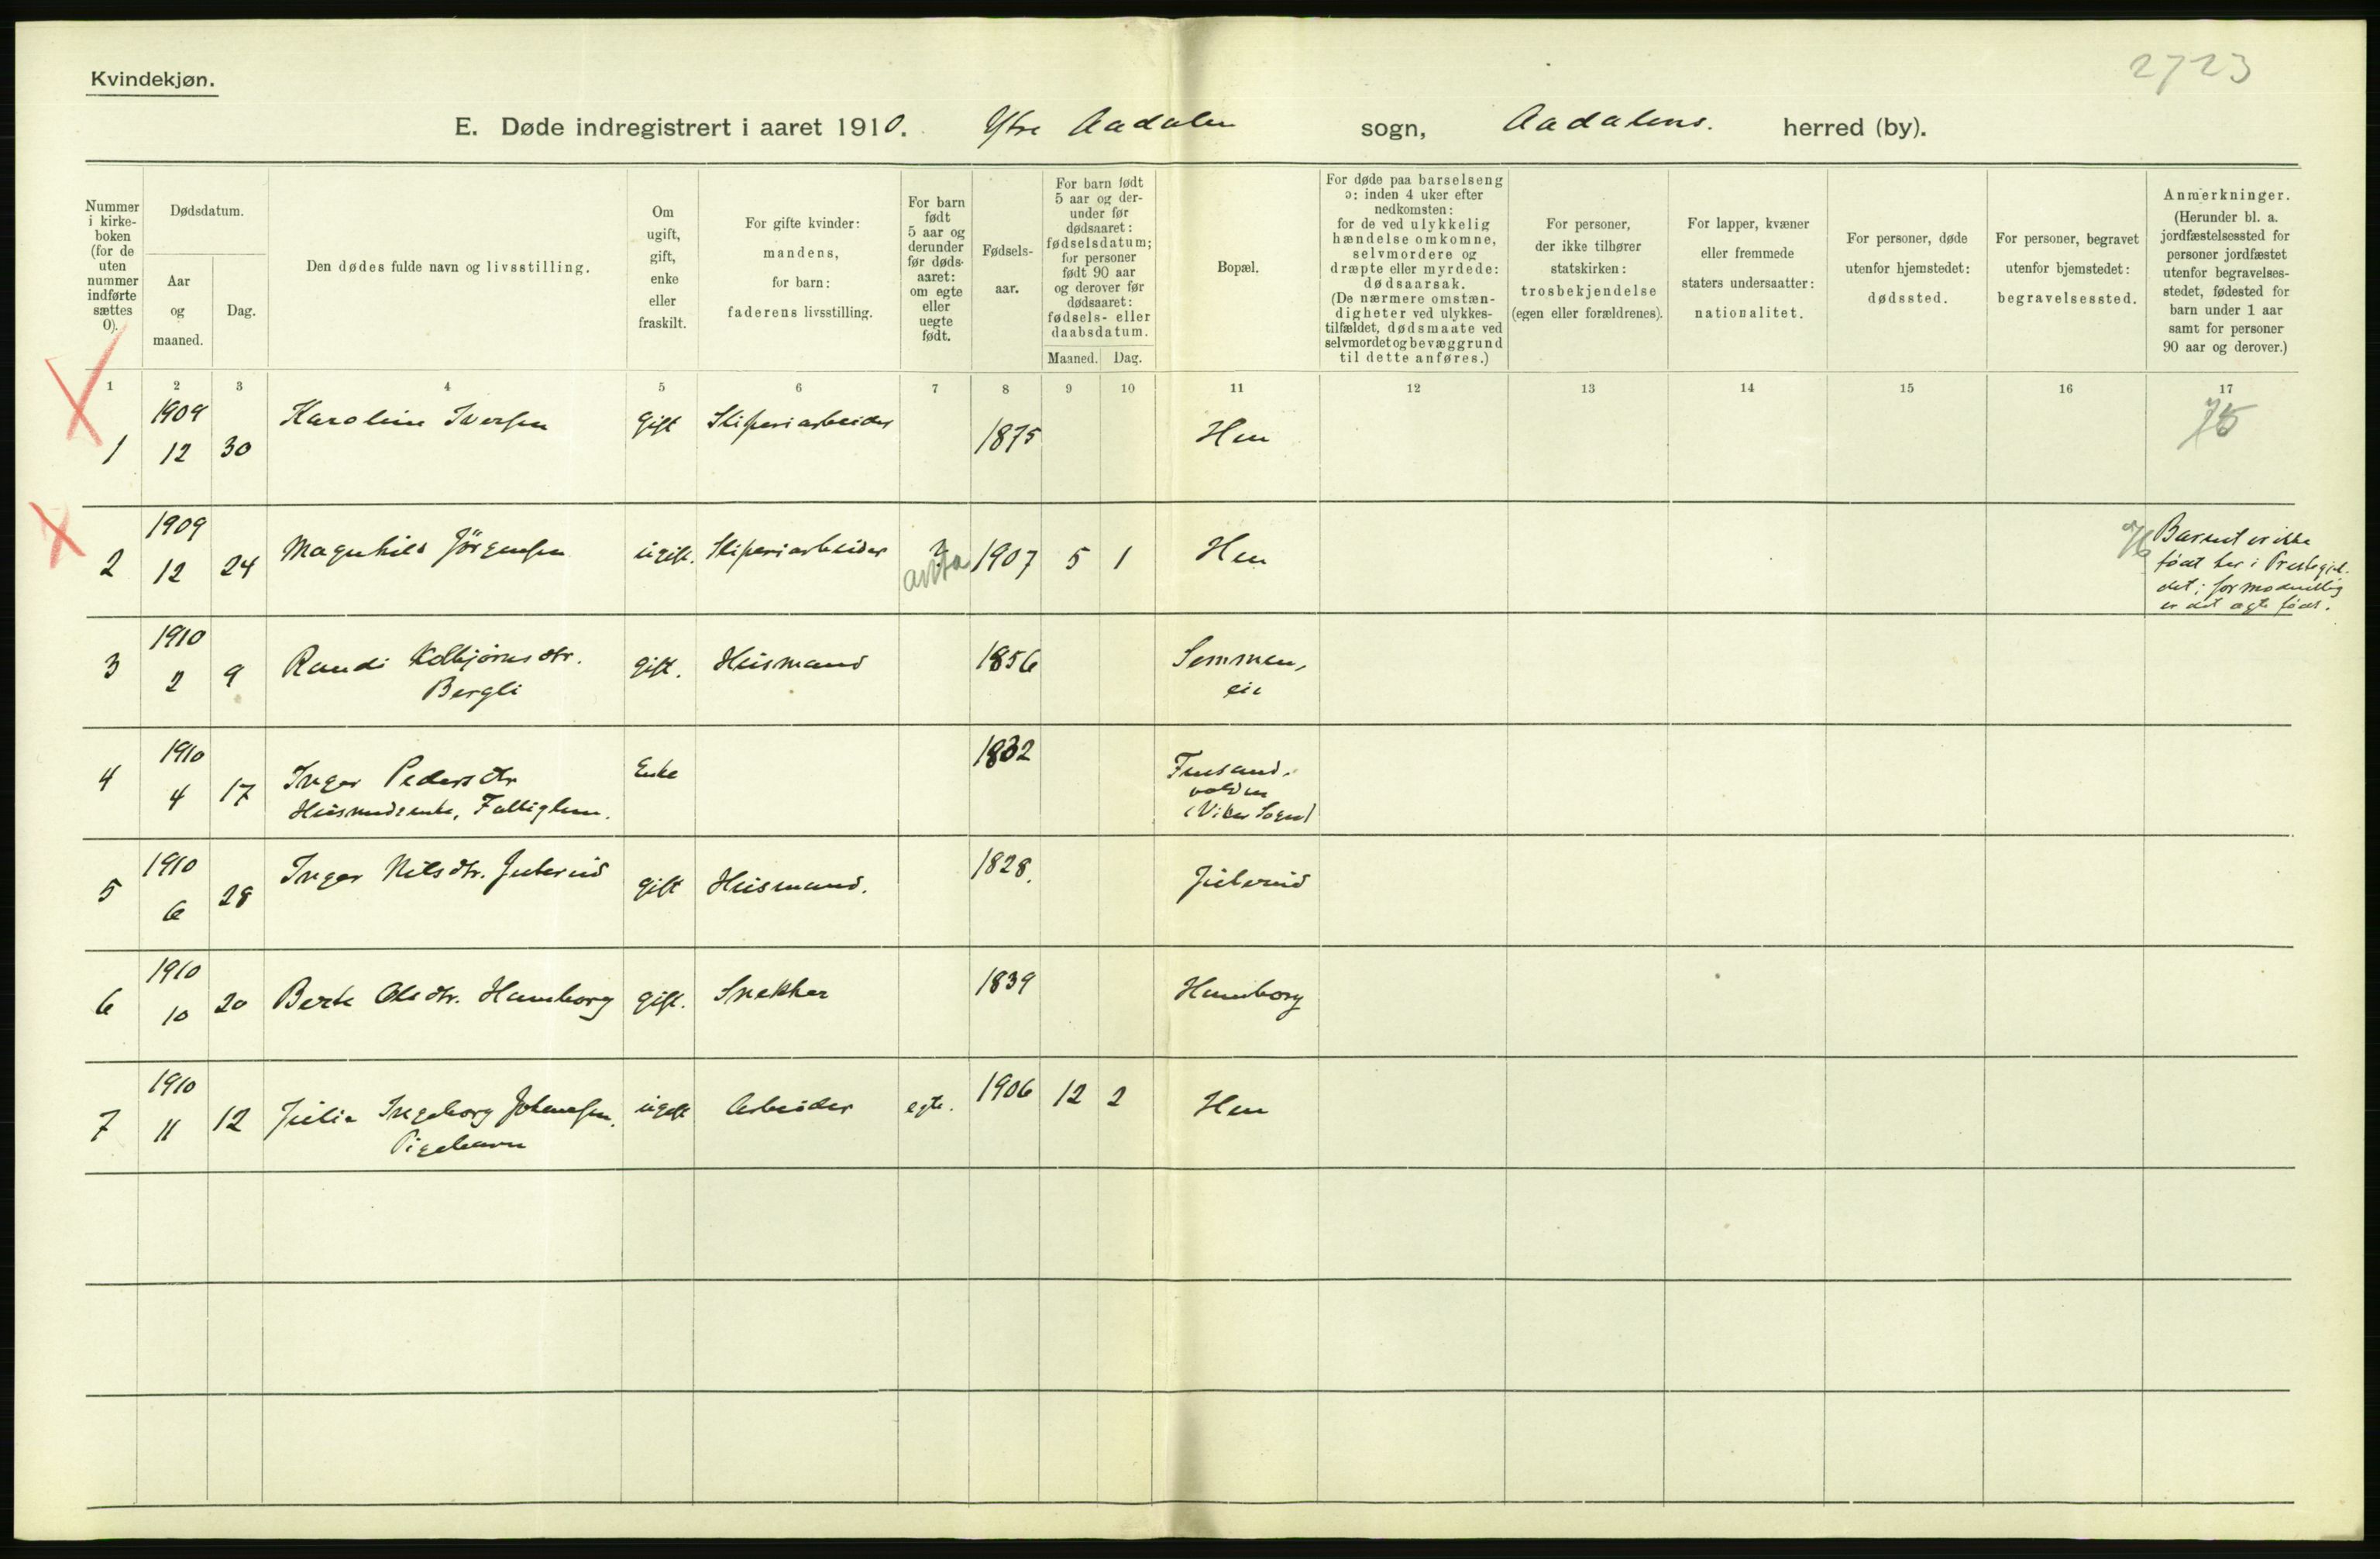 2723
Kvindekjøn.
E. Døde indregistrert i aaret 1910. Ytre Aadalen sogn, Aadalens. herred (by).
Nummer
i kirke-
boken
(for de
uten
nummer
indførte
sættes
0).
Dødsdatum.
Aar
og
maaned.
Dag.
Den dødes fulde navn og livsstilling.
Om
ugift,
gift,
enke
eller
fraskilt.
For gifte kvinder:
mandens,
for barn:
faderens livsstilling.
For barn
født
5 aar og
derunder
før døds-
aaret:
om egte
eller
uegte
født.
Fødsels-
aar.
For barn født
5 aar og der-
under før
dødsaaret:
fødselsdatum;
for personer
født 90 aar
og derover før
dødsaaret:
fødsels- eller
daabsdatum.
Maaned. Dag.
Bopæl.
For døde paa barselseng
ɔ: inden 4 uker efter
nedkomsten:
for de ved ulykkelig
hændelse omkomne,
selvmordere og
dræpte eller myrdede:
dødsaarsak.
(De nærmere omstæn-
digheter ved ulykkes-
tilfældet, dødsmaate ved
selvmordet og bevæggrund
til dette anføres.)
For personer,
der ikke tilhører
statskirken:
trosbekjendelse
(egen eller forældrenes).
For lapper, kvæner
eller fremmede
staters undersaatter:
nationalitet.
For personer, døde
utenfor hjemstedet:
dødssted.
For personer, begravet
utenfor bjemstedet:
begravelsessted.
Anmerkninger.
(Herunder bl. a.
jordfæstelsessted for
personer jordfæstet
utenfor begravelses-
stedet, fødested for
barn under 1 aar
samt for personer
90 aar og derover.)
1 2 3 4 5 6 7 8 9 10 11 12 13 14 15 16 17
1909
1 12 30 Karoline Iversen Gift Sliperiarbeider 1875 Hen 75
1909
2 12 24 Magnhild Jörgensen ugift. Sliperiarbeider ? 1907 5 1 Hen
76 Barnet er ikke
født her i Prestegjel-
det; formodentlig
er det ægte født.
1910
3 2 9 Randi Kolbjørnsdtr. gift. Husmand 1856 Semmen,
Bergli eie
1910
4 4 17 Inger Pedersdtr Enke 1832
Husmandsenke, Fattiglem.
(Viker Sogn)
1910
5 6 28 Inger Nilsdtr. Juberud gift Husmand. 1828. Juberud
1910
6 10 20 Berte Olsdtr. Hamborg gift. Snekker 1839 Hamborg
1910
7 11 12 Julie Ingeborg Johansen. ugift Arbeider egte. 1906 12 2 Hen
Pigebarn